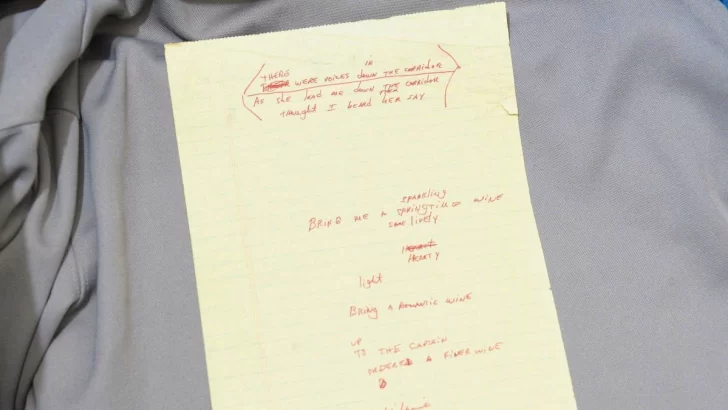 in
THERE
WERE VOICES DOWN THE CORRIDOR
AS SHE lead ME DOWN THE CORRIDOR
THOUGHT I HEARD HER SAY
SPARKLING
BRING ME A SPRINGTIME WINE
LIVELY
HEARTY
light
BRING A ROMANTIC WINE
UP
TO THE CAPTAIN
ORDERED A FINER WINE